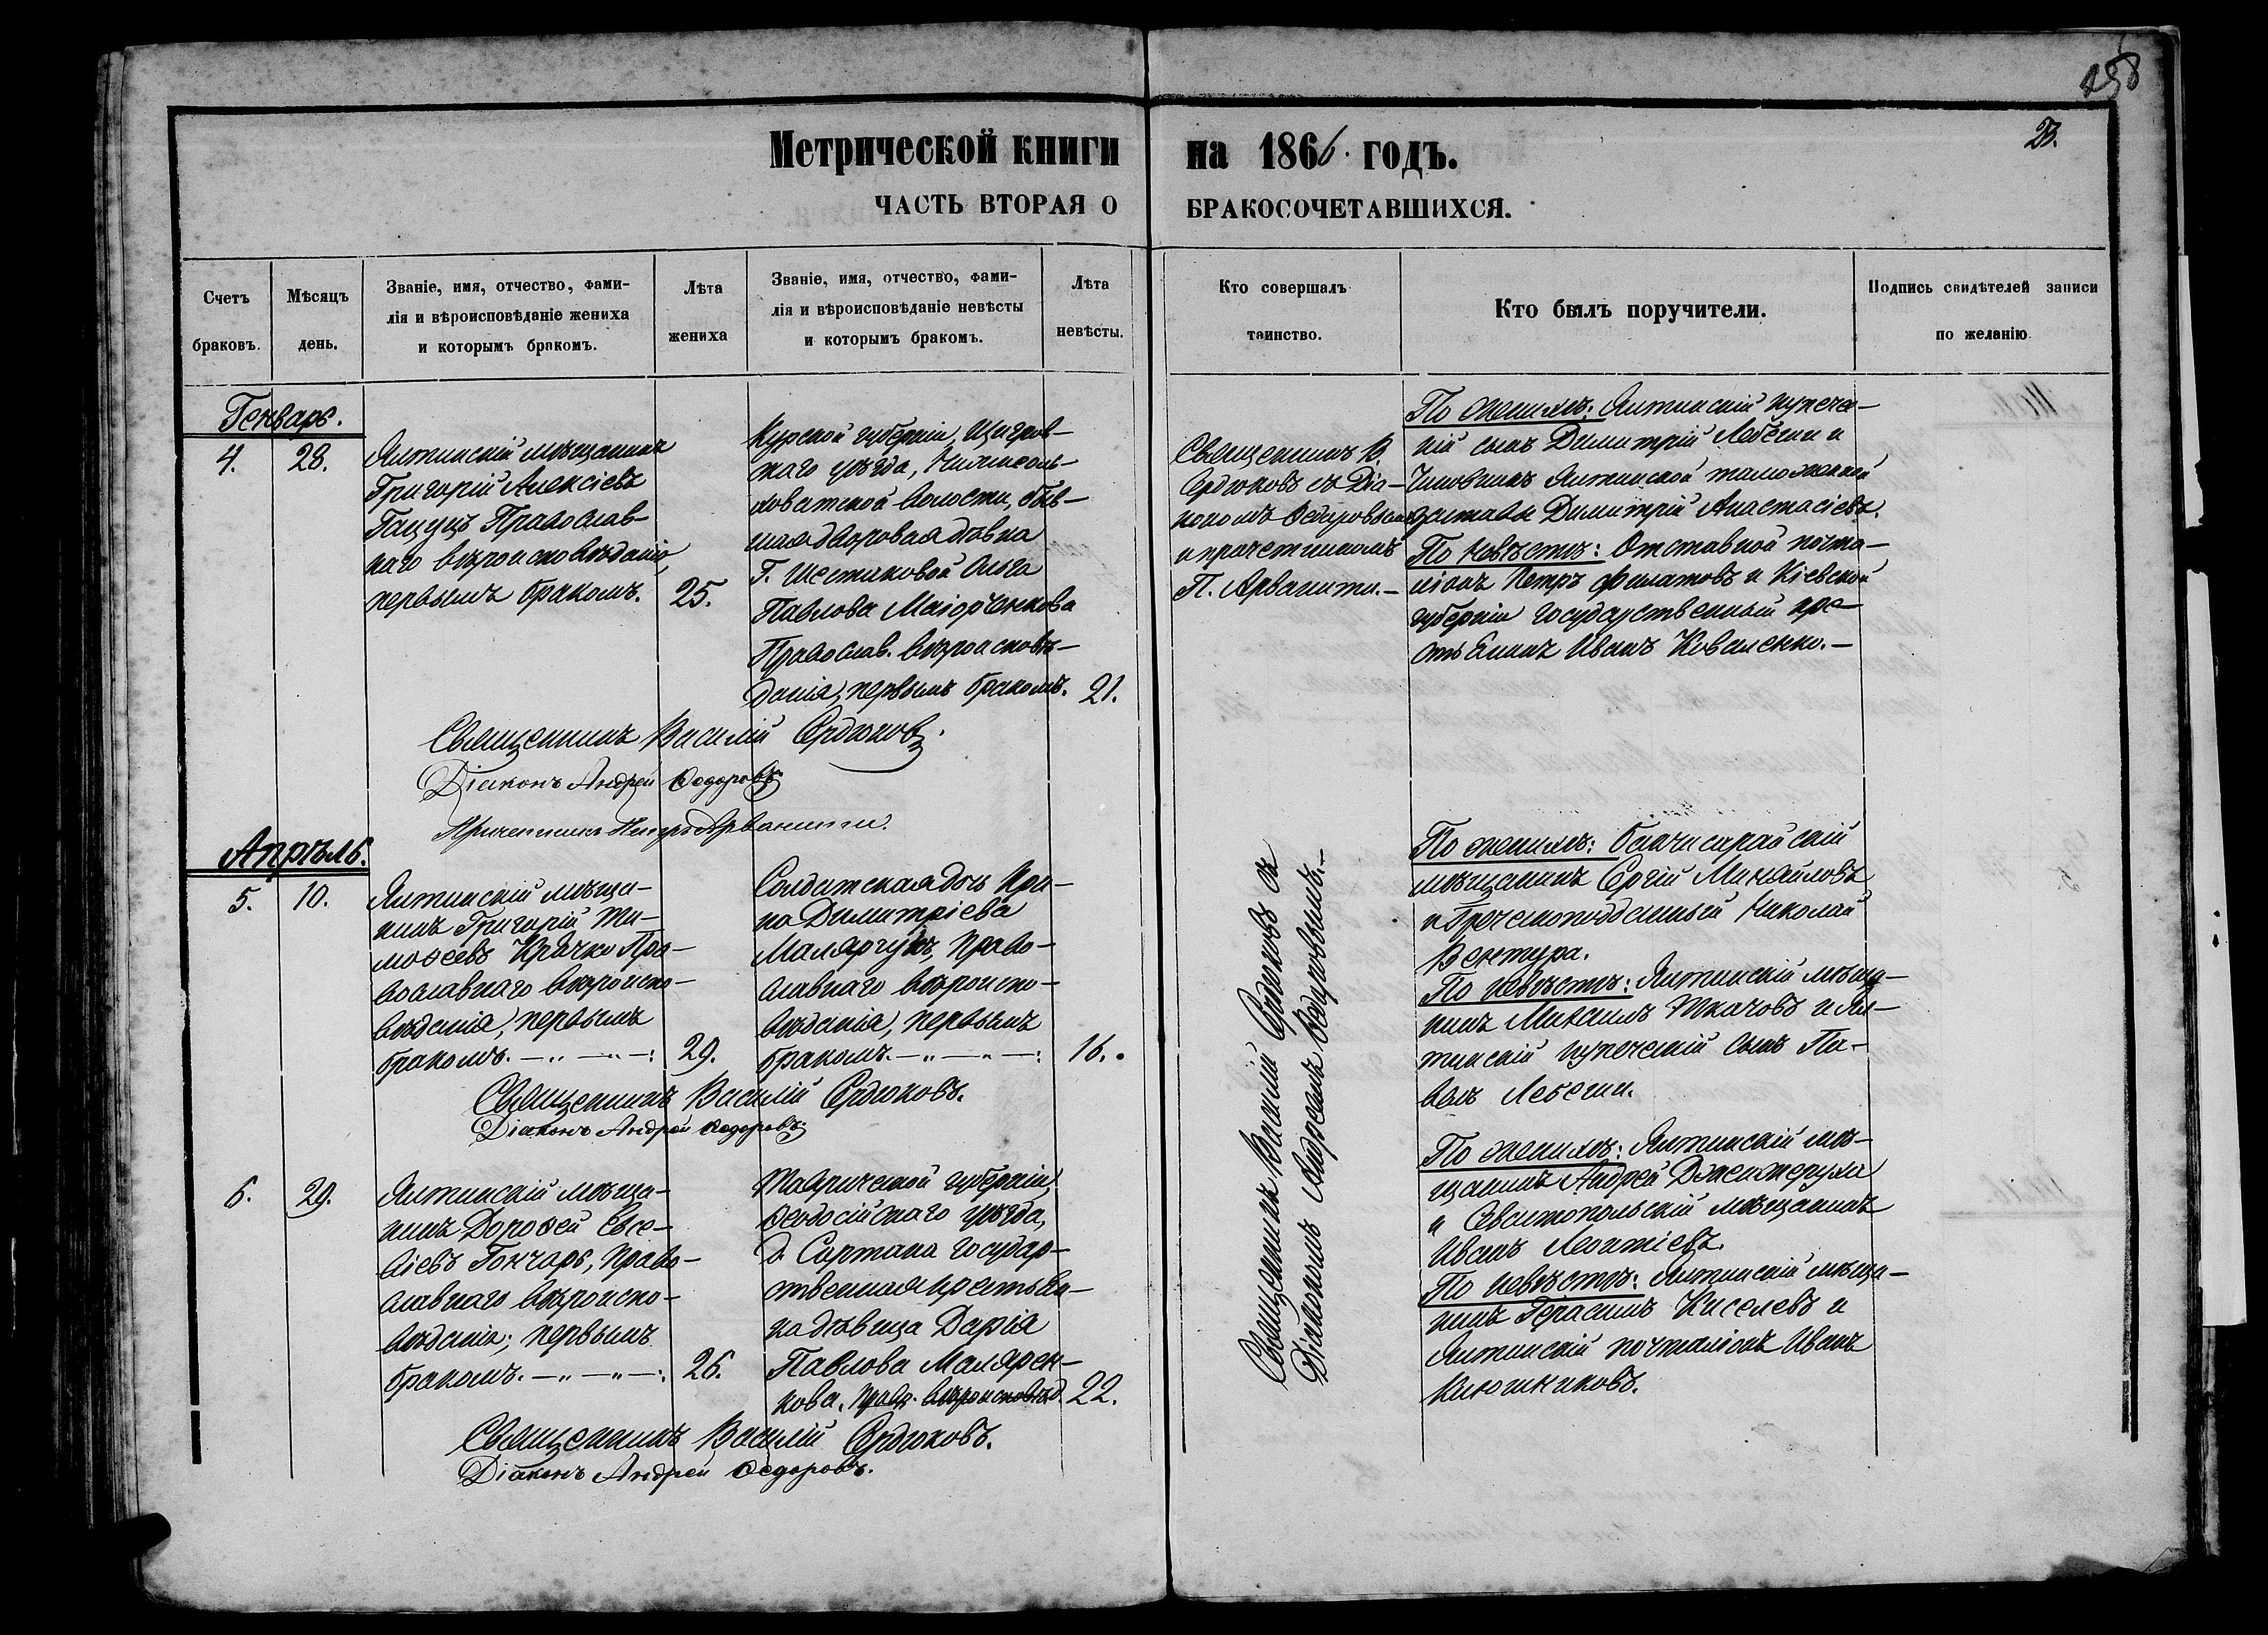 258
23.
Метрической книги на 1866. годъ.
ЧАСТЬ ВТОРАЯ О БРАКОСОЧЕТАВШИХСЯ.
Счетъ
браковъ.
Мѣсяцъ
день.
Званіе, имя, отчество, фами-
лія и вѣроисповѣданіе жениха
и которымъ бракомъ.
Лѣта
жениха
Званіе, имя, отчество, фами-
лія и вѣроисповѣданіе невѣсты
и которымъ бракомъ.
Лѣта
невѣсты.
Кто совершалъ
таинство.
Кто былъ поручители.
Подпись свидѣтелей записи
по желанію.
Генварь.
4.
28.
Ялтинскій мѣщанинъ
Григорій Алексіевъ
Гацуцъ Православ-
наго вѣроисповѣданія,
первымъ бракомъ.
25.
Курской губерніи, Щигров-
скаго уѣзда, Нижнеоль-
ховатской волости, быв-
шая дворовая дѣвка
Г. Шестаковой Ольга
Павлова Маіорченкова
Православ. вѣроисповѣ-
данія, первымъ бракомъ.
21.
Священникъ В.
Сердюковъ съ Діа-
кономъ Ѳедоровымъ
и причетникомъ
П. Арванити.-
По женихѣ: Ялтинскій купече-
кій сынъ Димитрій Лебеши и
Чиновникъ Ялтинской таможенной
заставы Димитрій Анастасіевъ.
По невѣстѣ: Отставной почта-
ліонъ Петръ Филатовъ и Кіевской
губерніи государственный кре-
стьянинъ Иванъ Коваленко.-
Священникъ Василій Сердюковъ.
Діаконъ Андрей Ѳедоровъ
Причетникъ Петръ Арванити.
Апрѣль.
5.
10.
Ялтинскій мѣща-
нинъ Григорій Ти-
моѳеевъ Крачко Пра-
вославнаго вѣроиспо-
вѣданія, первымъ
бракомъ. -„-„-:
29.
Солдатская дочь Ири-
на Димитріева
Маляргукъ, Право-
славнаго вѣроиспо-
вѣданія, первымъ
бракомъ.-„-„-:
16.
Священникъ Василій Сердюковъ съ
Діакономъ Андреемъ Ѳедоровымъ.-
По женихѣ: Бахчисарайскій
мѣщанинъ Сергій Михайловъ
и Греческоподданный Николай
Вентура.
По невѣстѣ: Ялтинскій мѣща-
нинъ Михаилъ Ткачовъ и Ял-
тинскій купеческій сынъ Па-
велъ Лебеши.
Священникъ Василій Сердюковъ.
Діаконъ Андрей Ѳедоровъ
6.
29.
Ялтинскій мѣща-
нинъ Дороѳей Евсе-
віевъ Гончаръ, Право-
славнаго вѣроиспо-
вѣданія, первымъ
бракомъ. -„-„-:
26.
Таврической губерніи,
Ѳеодосійскаго уѣзда,
д. Сартана государ-
ственная крестьян-
ка дѣвица Дарія
Павлова Маларен-
кова, Прав. вѣроисповѣд.
22.
По женихѣ: Ялтинскій мѣ-
щанинъ Андрей Дженжеруха
и Севастопольскій мѣщанинъ
Иванъ Леонтіевъ.
По невѣстѣ: Ялтинскій мѣща-
нинъ Герасимъ Киселевъ и
Ялтинскій почталіонъ Иванъ
Ключниковъ.
Священникъ Василій Сердюковъ.
Діаконъ Андрей Ѳедоровъ.